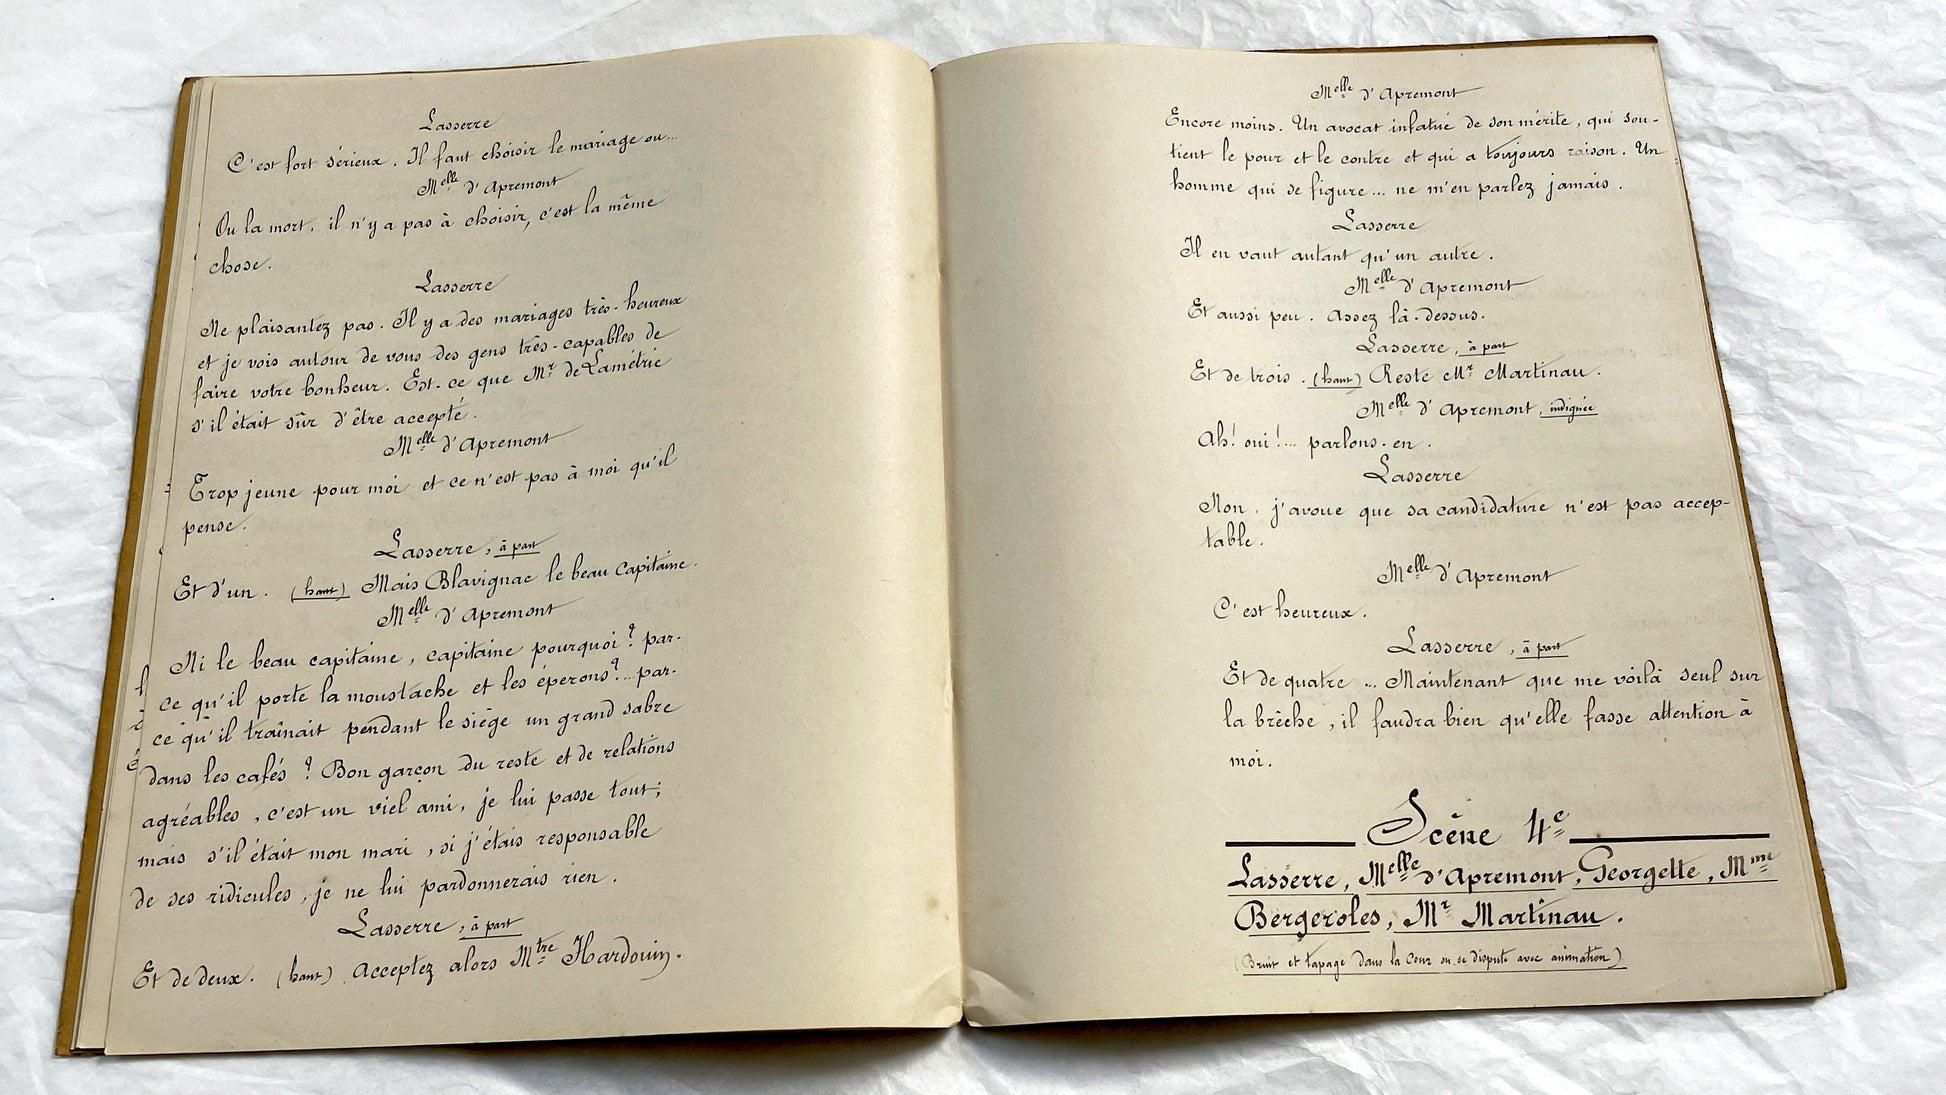 Lasserre
C'est fort sérieux. Il faut choisir le mariage ou...
Melle d'Apremont
Ou la mort, il n'y a pas à choisir, c'est la même
chose.
Lasserre
Ne plaisantez pas. Il y a des mariages très-heureux
et je vois autour de vous des gens très-capables de
faire votre bonheur. Est-ce que Mr de Lamétrie
s'il était sûr d'être accepté.
Melle d'Apremont
Trop jeune pour moi et ce n'est pas à moi qu'il
pense.
Lasserre, à part
Et d'un. (haut) Mais Blavignac le beau capitaine.
Melle d'Apremont
Ni le beau capitaine, capitaine pourquoi? par-
ce qu'il porte la moustache et les éperons?... par-
ce qu'il traînait pendant le siège un grand sabre
dans les cafés? Bon garçon du reste et de relations
agréables, c'est un viel ami, je lui passe tout;
mais s'il était mon mari, si j'étais responsable
de ses ridicules, je ne lui pardonnerais rien.
Lasserre, à part
Et de deux. (haut) Acceptez alors Mtre Hardouin.
Melle d'Apremont
Encore moins. Un avocat infatué de son mérite, qui sou-
tient le pour et le contre et qui a toujours raison. Un
homme qui se figure... ne m'en parlez jamais.
Lasserre
Il en vaut autant qu'un autre.
Melle d'Apremont
Et aussi peu. Assez là-dessus.
Lasserre, à part
Et de trois. (haut) Reste Mr Martinau.
Melle d'Apremont, indignée
Ah! oui!... parlons-en.
Lasserre
Non. j'avoue que sa candidature n'est pas accep-
table.
Melle d'Apremont
C'est heureux.
Lasserre, à part
Et de quatre... Maintenant que me voilà seul sur
la brèche, il faudra bien qu'elle fasse attention à
moi.
Scène 4e
Lasserre, Melle d'Apremont, Georgette, Mme
Bergeroles, Mr Martinau.
(Bruit et tapage dans la cour on se dispute avec animation)